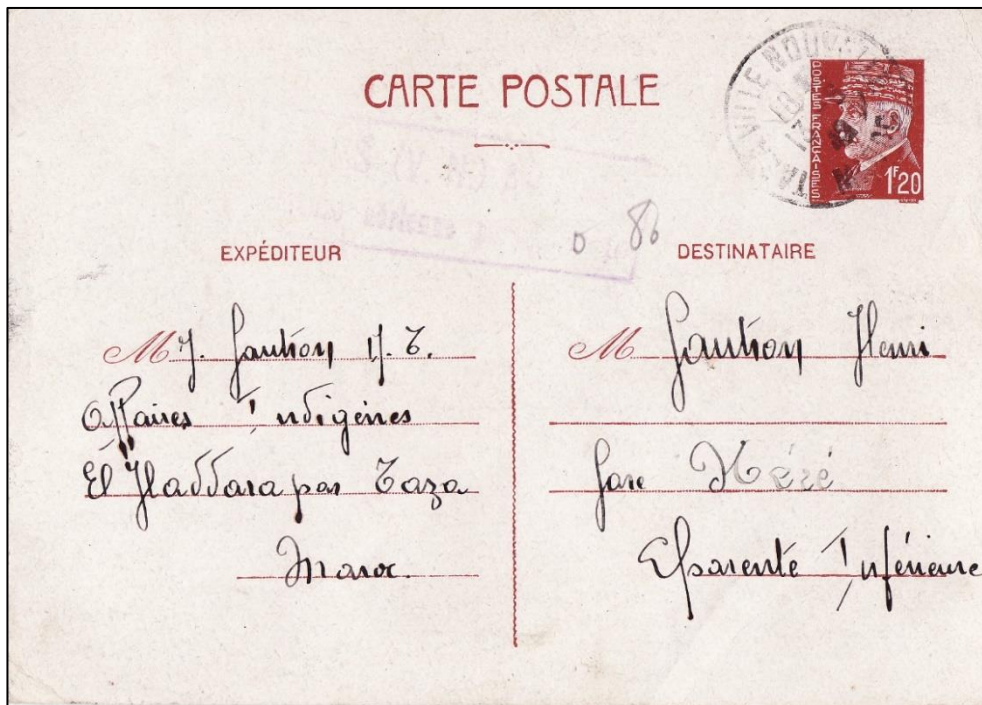 CARTE POSTALE
POSTES FRANÇAISES
1F20
TAZA VILLE NOUVELLE
86
EXPÉDITEUR
M J. Gautron
Affaires Indigènes
El Haddara par Taza
Maroc.
DESTINATAIRE
M Gautron Henri
Gare Néré
Charente Inférieure